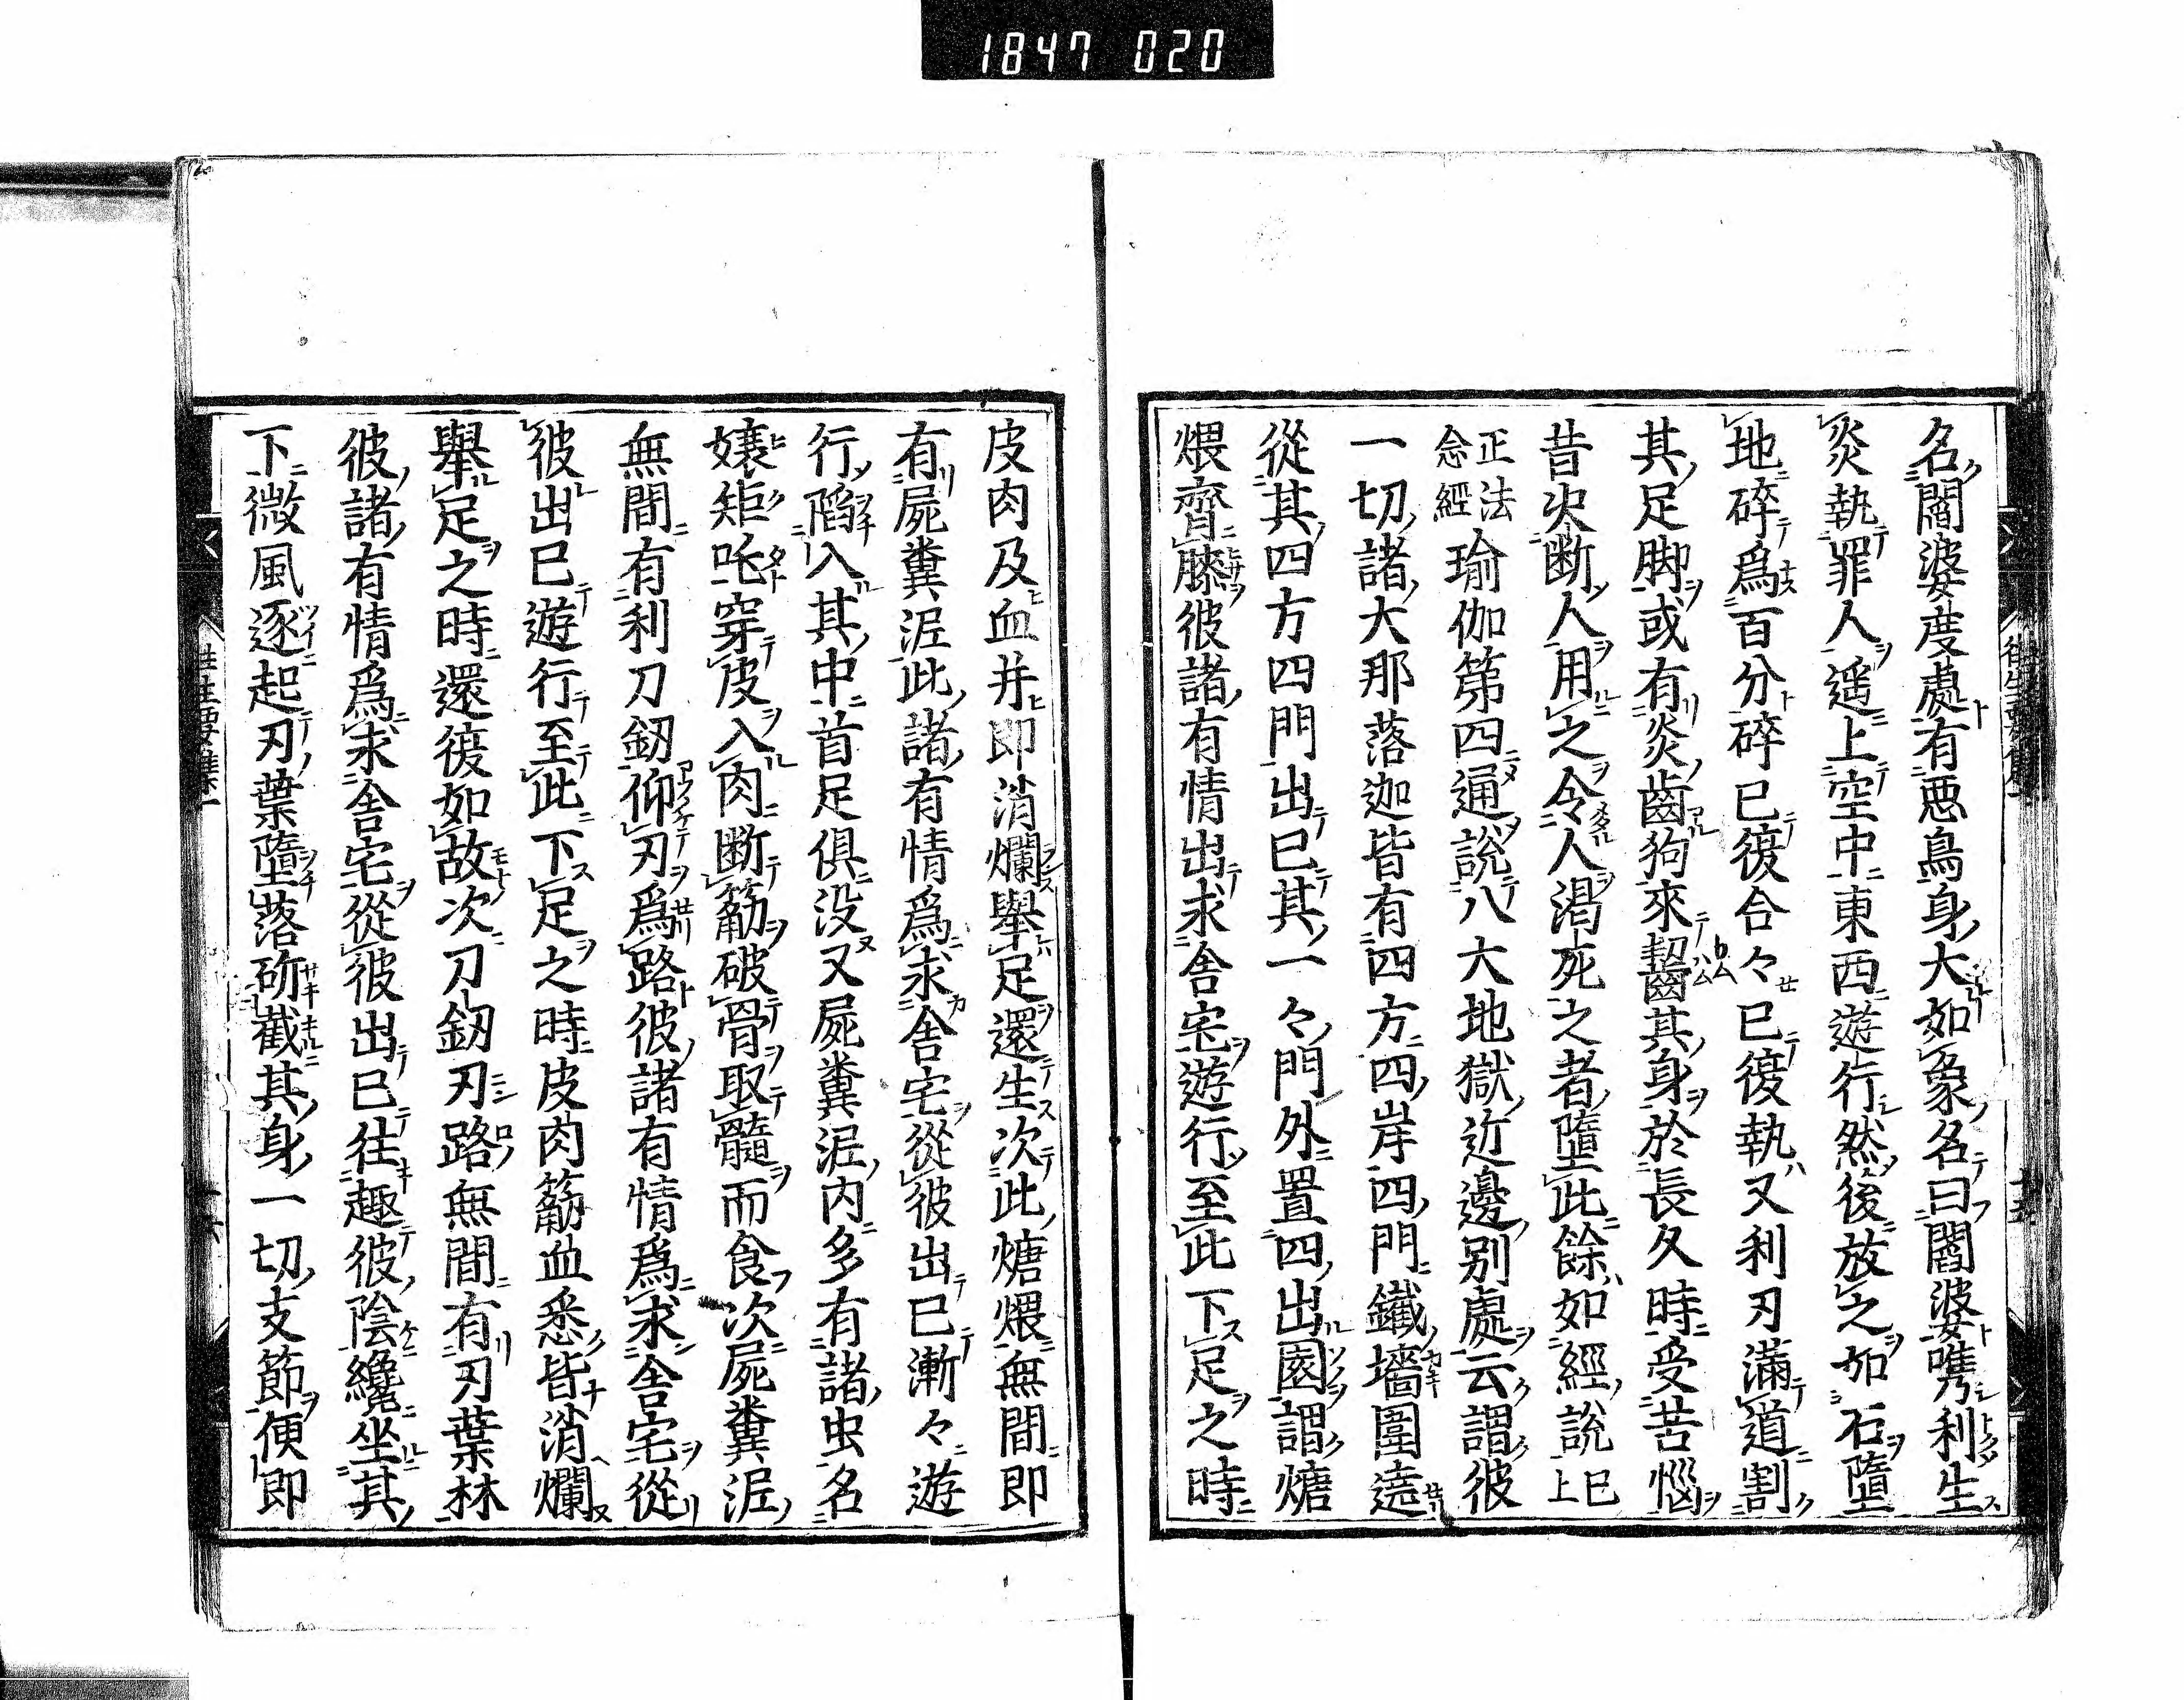 1847 020
名閻婆度處有悪鳥身大如象名曰閻婆㗨利生
炎執罪人遥上空中東西遊行然後放之如石墮
地碎爲百分碎已復合々已復執又利刃滿道割
其足脚或有炎齒狗來齧其身於長久時受苦惱
昔火断人用之令人渇死之者墮此餘如經說已上
正法念經瑜伽第四通說八大地獄近邊別處云謂彼
一切諸大那落迦皆有四方四岸四門鐵墻圍遶
從其四方四門出已其一々門外置四出園謂煻
煨齊膝彼諸有情出求舎宅遊行至此下足之時
皮肉及血并即消爛舉足還生次此煻煨無間即
有屍糞泥此諸有情爲求舎宅從彼出已漸々遊
行陷入其中首足倶没又屍糞泥内多有諸虫名
嬢矩吒穿皮入肉断筋破骨取髓而食次屍糞泥
無間有利刀釼仰刃爲路彼諸有情爲求舎宅從
彼出已遊行至此下足之時皮肉筋血悉皆消爛
舉足之時還復如故次刀釼刃路無間有刃葉林
彼諸有情爲求舎宅從彼出已往趣彼陰纔坐其
下微風逐起刃葉墮落斫截其身一切支節便即